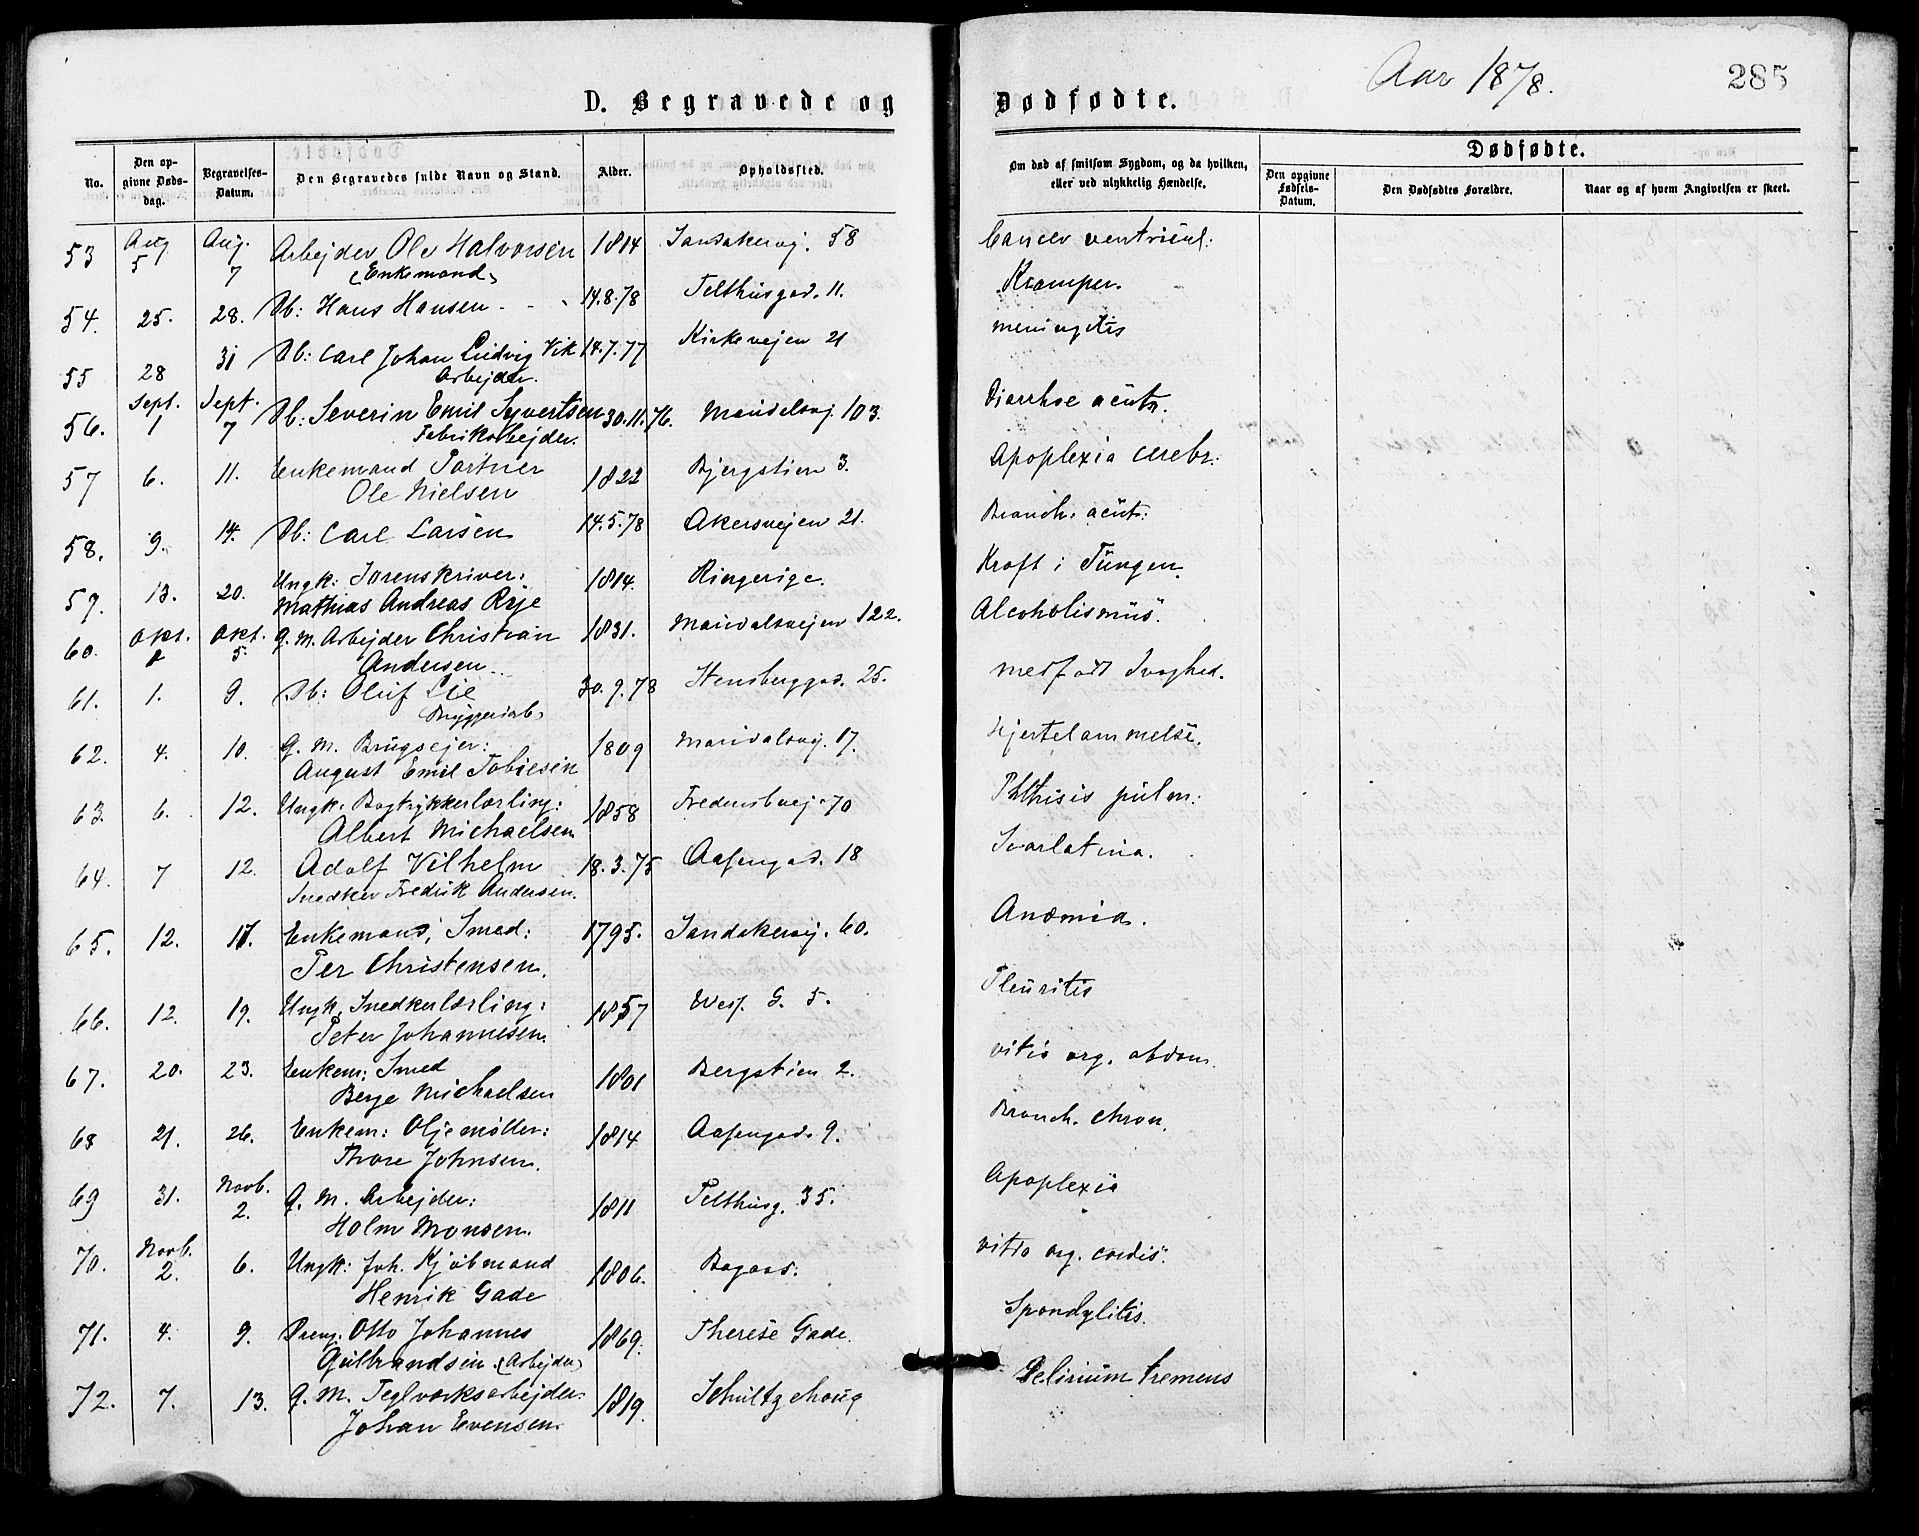 Aar 1878.
285
D. Begravede og Dødfødte.
No.
Den opgivne Dødsdag.
Begravelses-Datum.
Den Begravedes fulde Navn og Stand.
Alder.
Opholdssted.
Om død af smitsom Sygdom, og da hvilken, eller ved ulykkelig Hændelse.
Dødfødte.
Den opgivne Fødsels-Datum.
Den Dødfødtes Forældre.
Naar og af hvem Angivelsen er skeet.
53 Aug 5 Aug. 7 Arbejder Ole Halvorsen 1814 Sandakervej. 58 Cancer ventricul:
(Enkemand)
54. 25. 28. Db: Hans Hansen 14.8.78 Telthusgad. 11. Kramper.
55 28 31 Db: Carl Johan Ludvig Vik 14.7.77 Kirkevejen 21 meningitis
Arbejder.
56. Sept. 1 Sept. 7 Db: Severin Emil Syvertsen 30.11.76. Maridalsvej 103. Diarrhoe acuta.
Fabrikarbejder.
57 6. 11. Enkemand Portner 1822 Bjergstien 3. Apoplexia cerebr:
Ole Nielsen
58. 9. 14. Db: Carl Larsen 14.5.78 Akersvejen 21. Bronch. acut:
59. 13. 20. Ungk: Sorenskriver: 1814. Ringerige. Kræft i Tungen.
Mathias Andreas Rye
60. Okt. 1 Okt. 5. G. M. Arbejder Christian 1831. Maridalsvejen 122. Alcoholismus.
Andersen
61. 1. 9. Db: Oluf Lie 30.9.78 Stensberggad. 25. medfødt Svaghed.
Bryggeriarb
62. 4. 10. G. M. Brugsejer: 1809 Maridalsvej. 17. Hjertelammelse.
August Emil Tobiesen
63. 6. 12. Ungk: Bogtrykkerlærling: 1858 Fredensbvej 70 Phthisis pulm:
Albert Michaelsen
64. 7 12. Adolf Vilhelm 18.3.75 Aasengad. 18 Scarlatina.
Snedker Fredrik Andersen.
65. 12. 17. Enkemand, Smed: 1795. Sandakervej. 60. Anæmia.
Per Christensen.
66. 12. 19. Ungk. Snedkerlærling: 1857 Wesf. G. 5. Pleuritis
Peter Johannesen.
67. 20. 23. Enkem: Smed 1801 Bergstien 2. vitio org. abdom.
Berge Michaelsen
68 21. 26. Enkem: Oljemøller: 1814 Aasengad. 9. Bronch. chron.
Thore Johnsen.
69 31. Novb. 2. G. M. Arbejder: 1811 Telthusg. 35. Apoplexia
Holm Monsen.
70. Novb. 2. 6. Ungk: foh. Kjøbmand 1806. Bagaas. vitio org. cordis.
Henrik Gade
71. 4. 9. Dreng: Otto Johannes 1869. Therese Gade. Spondylitis.
Gulbrandsen (Arbejder)
72. 7. 13. G. M. Teglværksarbejder. 1819. Schultzehoug Delirium tremens
Johan Evensen.